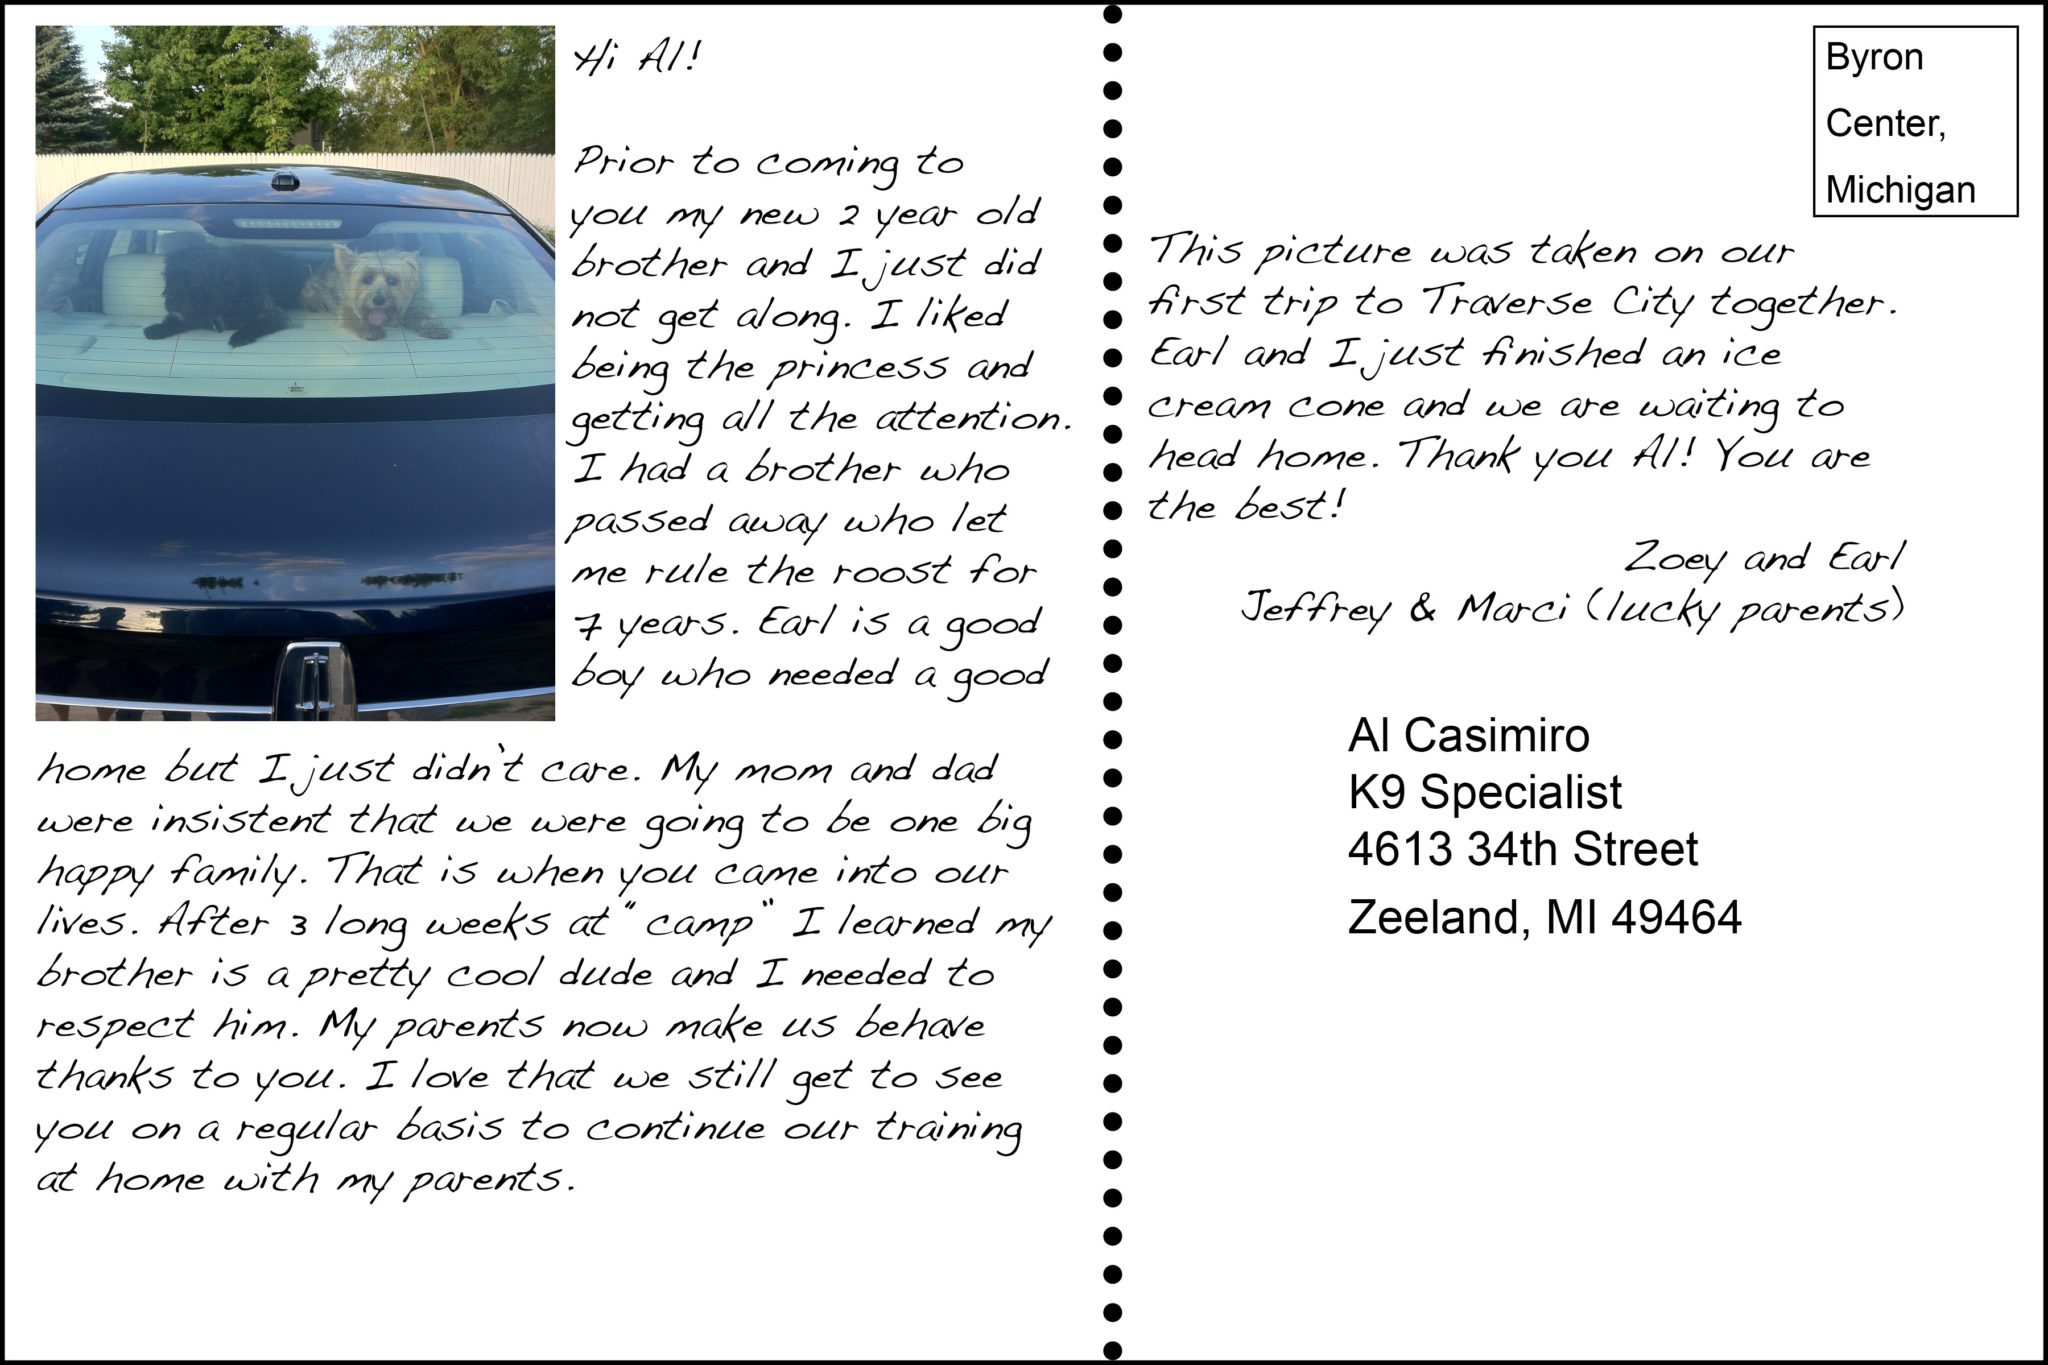 Hi Al!
Prior to coming to
you my new 2 year old
brother and I just did
not get along. I liked
being the princess and
getting all the attention.
I had a brother who
passed away who let
me rule the roost for
7 years. Earl is a good
boy who needed a good
home but I just didn't care. My mom and dad
were insistent that we were going to be one big
happy family. That is when you came into our
lives. After 3 long weeks at "camp" I learned my
brother is a pretty cool dude and I needed to
respect him. My parents now make us behave
thanks to you. I love that we still get to see
you on a regular basis to continue our training
at home with my parents.
Byron
Center,
Michigan
This picture was taken on our
first trip to Traverse City together.
Earl and I just finished an ice
cream cone and we are waiting to
head home. Thank you Al! You are
the best!
Zoey and Earl
Jeffrey & Marci (lucky parents)
Al Casimiro
K9 Specialist
4613 34th Street
Zeeland, MI 49464